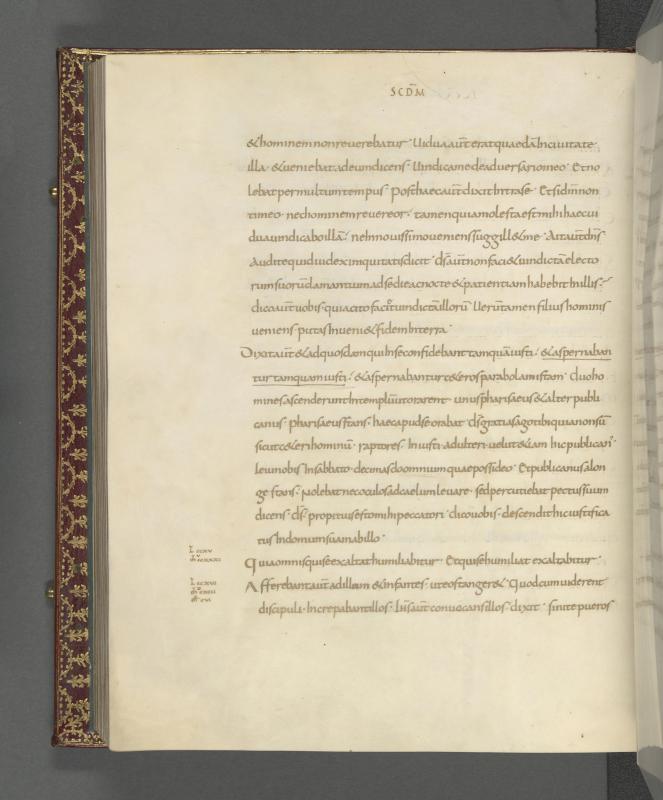 SCDM
& hominem non reverebatur · Uidua aut erat quaedā In civitate
illa · & veniebat ad eum dicens · Uindica me de adversario meo · Et no
lebat per multum tempus · Post haec aut dixit Intra se · Et si dm non
timeo · nec hominem revereor · tamen quia molesta est mihi haec vi
dua vindicabo illā · ne In novissimo veniens suggill& me · Ait aut dns
Audite quid iudex iniquitatis dicit · ds aut non faci& vindictā electo
rum suorū clamantium ad se die ac nocte & patientiam habebit In illis ·
dico aut vobis · quia cito faci& vindictā illorū · Uerūtamen filius hominis
veniens · putas Inveni& fidem In terra ·
Dixit aut & ad quosdam qui In se confidebant tamquā iusti · & aspernaban
tur tamquam iusti · & aspernabantur c&eros parabolam istam · Duo ho
mines ascenderunt In templū ut orarent · unus pharisaeus & alter publi
canus · Pharisaeus stans · haec apud se orabat · ds gratias ago tibi quia non sū
sicut c&eri hominū · raptores · Iniusti · adulteri · velut &iam hic publican'
Ieiuno bis In sabbato · decimas do omnium quae possideo · Et publicanus a lon
ge stans · Nolebat nec oculos ad caelum levare · sed percutiebat pectus suum
dicens · ds · propitius esto mihi peccatori · dico vobis · descendit hic iustifica
tus In domum suam ab illo ·
Quia omnis qui se exaltat humiliabitur · Et qui se humiliat exaltabitur ·
Afferebant aut ad illum & infantes · ut eos tanger& · Quod cum viderent
discipuli · Increpabant illos · Ihs aut convocans illos · dixit · sinite pueros